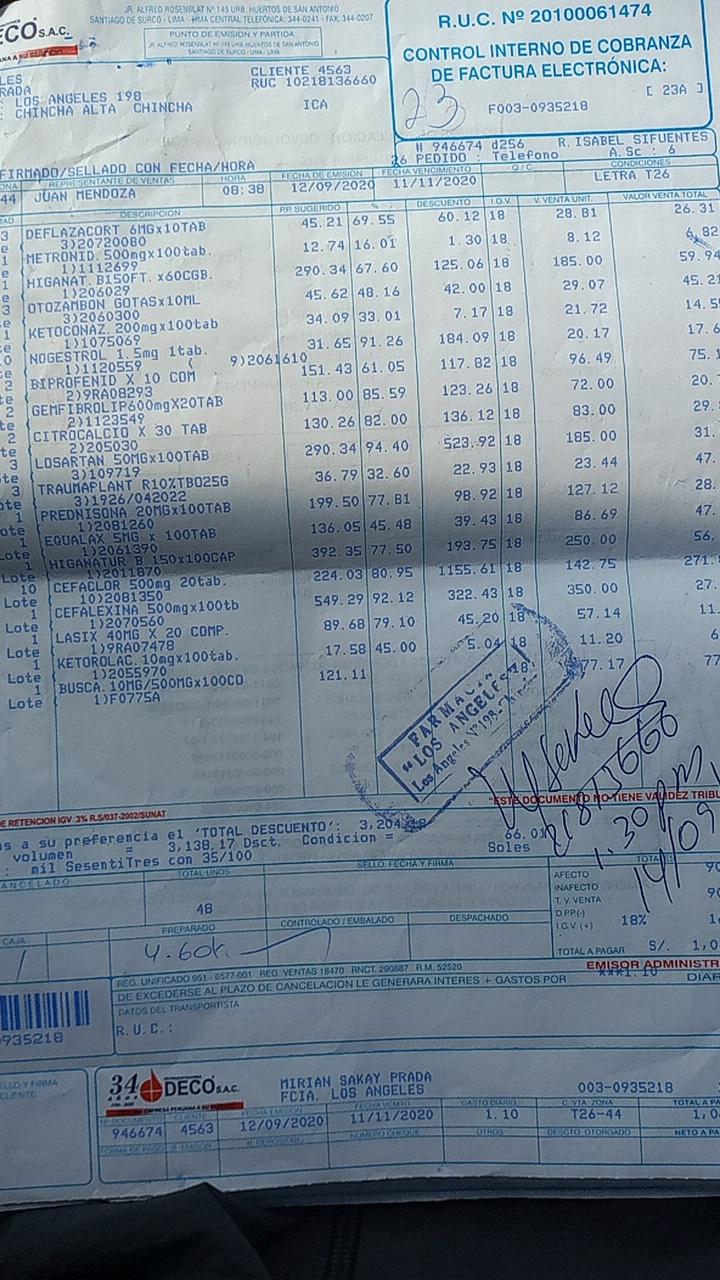 JR. ALFRED ROSENBLAT Nº 145 URB. HUERTOS DE SAN ANTONIO
SANTIAGO DE SURCO - LIMA - LIMA CENTRAL TELEFÓNICA: 344-0241 - FAX: 344-0207
DECO S.A.C.
PUNTO DE EMISIÓN Y PARTIDA
JR. ALFREDO ROSENBLAT Nº 145 URB. HUERTOS DE SAN ANTONIO
SANTIAGO DE SURCO - LIMA - LIMA
R.U.C. Nº 20100061474
CONTROL INTERNO DE COBRANZA
DE FACTURA ELECTRÓNICA:
[ 23A ]
23
F003-0935218
LES
RADA
: LOS ANGELES 198
: CHINCHA ALTA CHINCHA
CLIENTE 4563
RUC 10218136660
ICA
# 946674 d256 R. ISABEL SIFUENTES
26 PEDIDO : Telefono A.Sc : 6
FIRMADO/SELLADO CON FECHA/HORA
REPRESENTANTE DE VENTAS HORA FECHA DE EMISIÓN FECHA VENCIMIENTO O/C CONDICIONES
44 JUAN MENDOZA 08:38 12/09/2020 11/11/2020 LETRA T26
DESCRIPCION P.P. SUGERIDO % DESCUENTO I.G.V. V. VENTA UNIT. VALOR VENTA TOTAL
3 DEFLAZACORT 6MGx10TAB 45.21 69.55 60.12 18 28.81 26.31
3)20720080
METRONID. 500mgx100tab. 12.74 16.01 1.30 18 8.12 6.82
1)1112699
HIGANAT. B15OFT. x60CGB. 290.34 67.60 125.06 18 185.00 59.94
1)206029
3 OTOZAMBON GOTASx10ML 45.62 48.16 42.00 18 29.07 45.21
3)2060300
1 KETOCONAZ. 200mgx100tab 34.09 33.01 7.17 18 21.72 14.5
1)1075069
NOGESTROL 1.5mg 1tab. 31.65 91.26 184.09 18 20.17 17.6
1)1120559 ( 9)2061610
2 BIPROFENID X 10 COM 151.43 61.05 117.82 18 96.49 75.1
2)9RA08293
2 GEMFIBROLIP600mgX20TAB 113.00 85.59 123.26 18 72.00 20.
2)1123549
2 CITROCALCIO X 30 TAB 130.26 82.00 136.12 18 83.00 29.
2)205030
3 LOSARTAN 50MGx100TAB 290.34 94.40 523.92 18 185.00 31.
3)109719
3 TRAUMAPLANT R10%TBO25G 36.79 32.60 22.93 18 23.44 47.
3)1926/042022
1 PREDNISONA 20MGx100TAB 199.50 77.81 98.92 18 127.12 28.
1)2081260
1 EQUALAX 5MG x 100TAB 136.05 45.48 39.43 18 86.69 47.
Lote 1)2061390
1 HIGANATUR B 150x100CAP 392.35 77.50 193.75 18 250.00 56.
Lote 1)2011870
10 CEFACLOR 500mg 20tab. 224.03 80.95 1155.61 18 142.75 271.
Lote 10)2081350
1 CEFALEXINA 500mgx100tb 549.29 92.12 322.43 18 350.00 27.
Lote 1)2070560
1 LASIX 40MG X 20 COMP. 89.68 79.10 45.20 18 57.14 11.
Lote 1)9RA07478
1 KETOROLAC. 10mgx100tab. 17.58 45.00 5.04 18 11.20 6
Lote 1)2055970
1 BUSCA. 10MG/500MGx100CO 121.11 18 77.17 77
Lote 1)F0775A
FARMACIA
"LOS ANGELES"
Los Angeles Nº 198
21813666
1.30 pm
14/09
DE RETENCION IGV 3% R.S/037-2002/SUNAT
"ESTE DOCUMENTO NO TIENE VALIDEZ TRIBU
as a su preferencia el 'TOTAL DESCUENTO':
volumen = 3,138.17 Dsct. Condicion = 66.01
: mil SesentiTres con 35/100 Soles
CANCELADO TOTAL UNDS SELLO, FECHA Y FIRMA
48
CAJA PREPARADO CONTROLADO / EMBALADO DESPACHADO
AFECTO
INAFECTO
T. V. VENTA
D.P.P.(-)
I.G.V. (+) 18%
TOTAL A PAGAR S/. 1,0
REG. UNIFICADO 951 - 6577-001 REG. VENTAS 18470 RNCT. 290887 R.M. 52520
EMISOR ADMINISTR
DE EXCEDERSE AL PLAZO DE CANCELACION LE GENERARA INTERES + GASTOS POR ***1.10 DIAR
DATOS DEL TRANSPORTISTA
R.U.C.:
0935218
SELLO Y FIRMA
CLIENTE
34 DECO S.A.C.
MIRIAN SAKAY PRADA
FCIA. LOS ANGELES
003-0935218
Nº DOCUMENTO CLIENTE FECHA EMISION FECHA VCMTO GASTO DIARIO C. VTA ZONA TOTAL A PA
946674 4563 12/09/2020 11/11/2020 1.10 T26-44 1,0
FORMA DE PAGO NUMERO CHEQUE OTROS DESCTO. OTORGADO NETO A PA